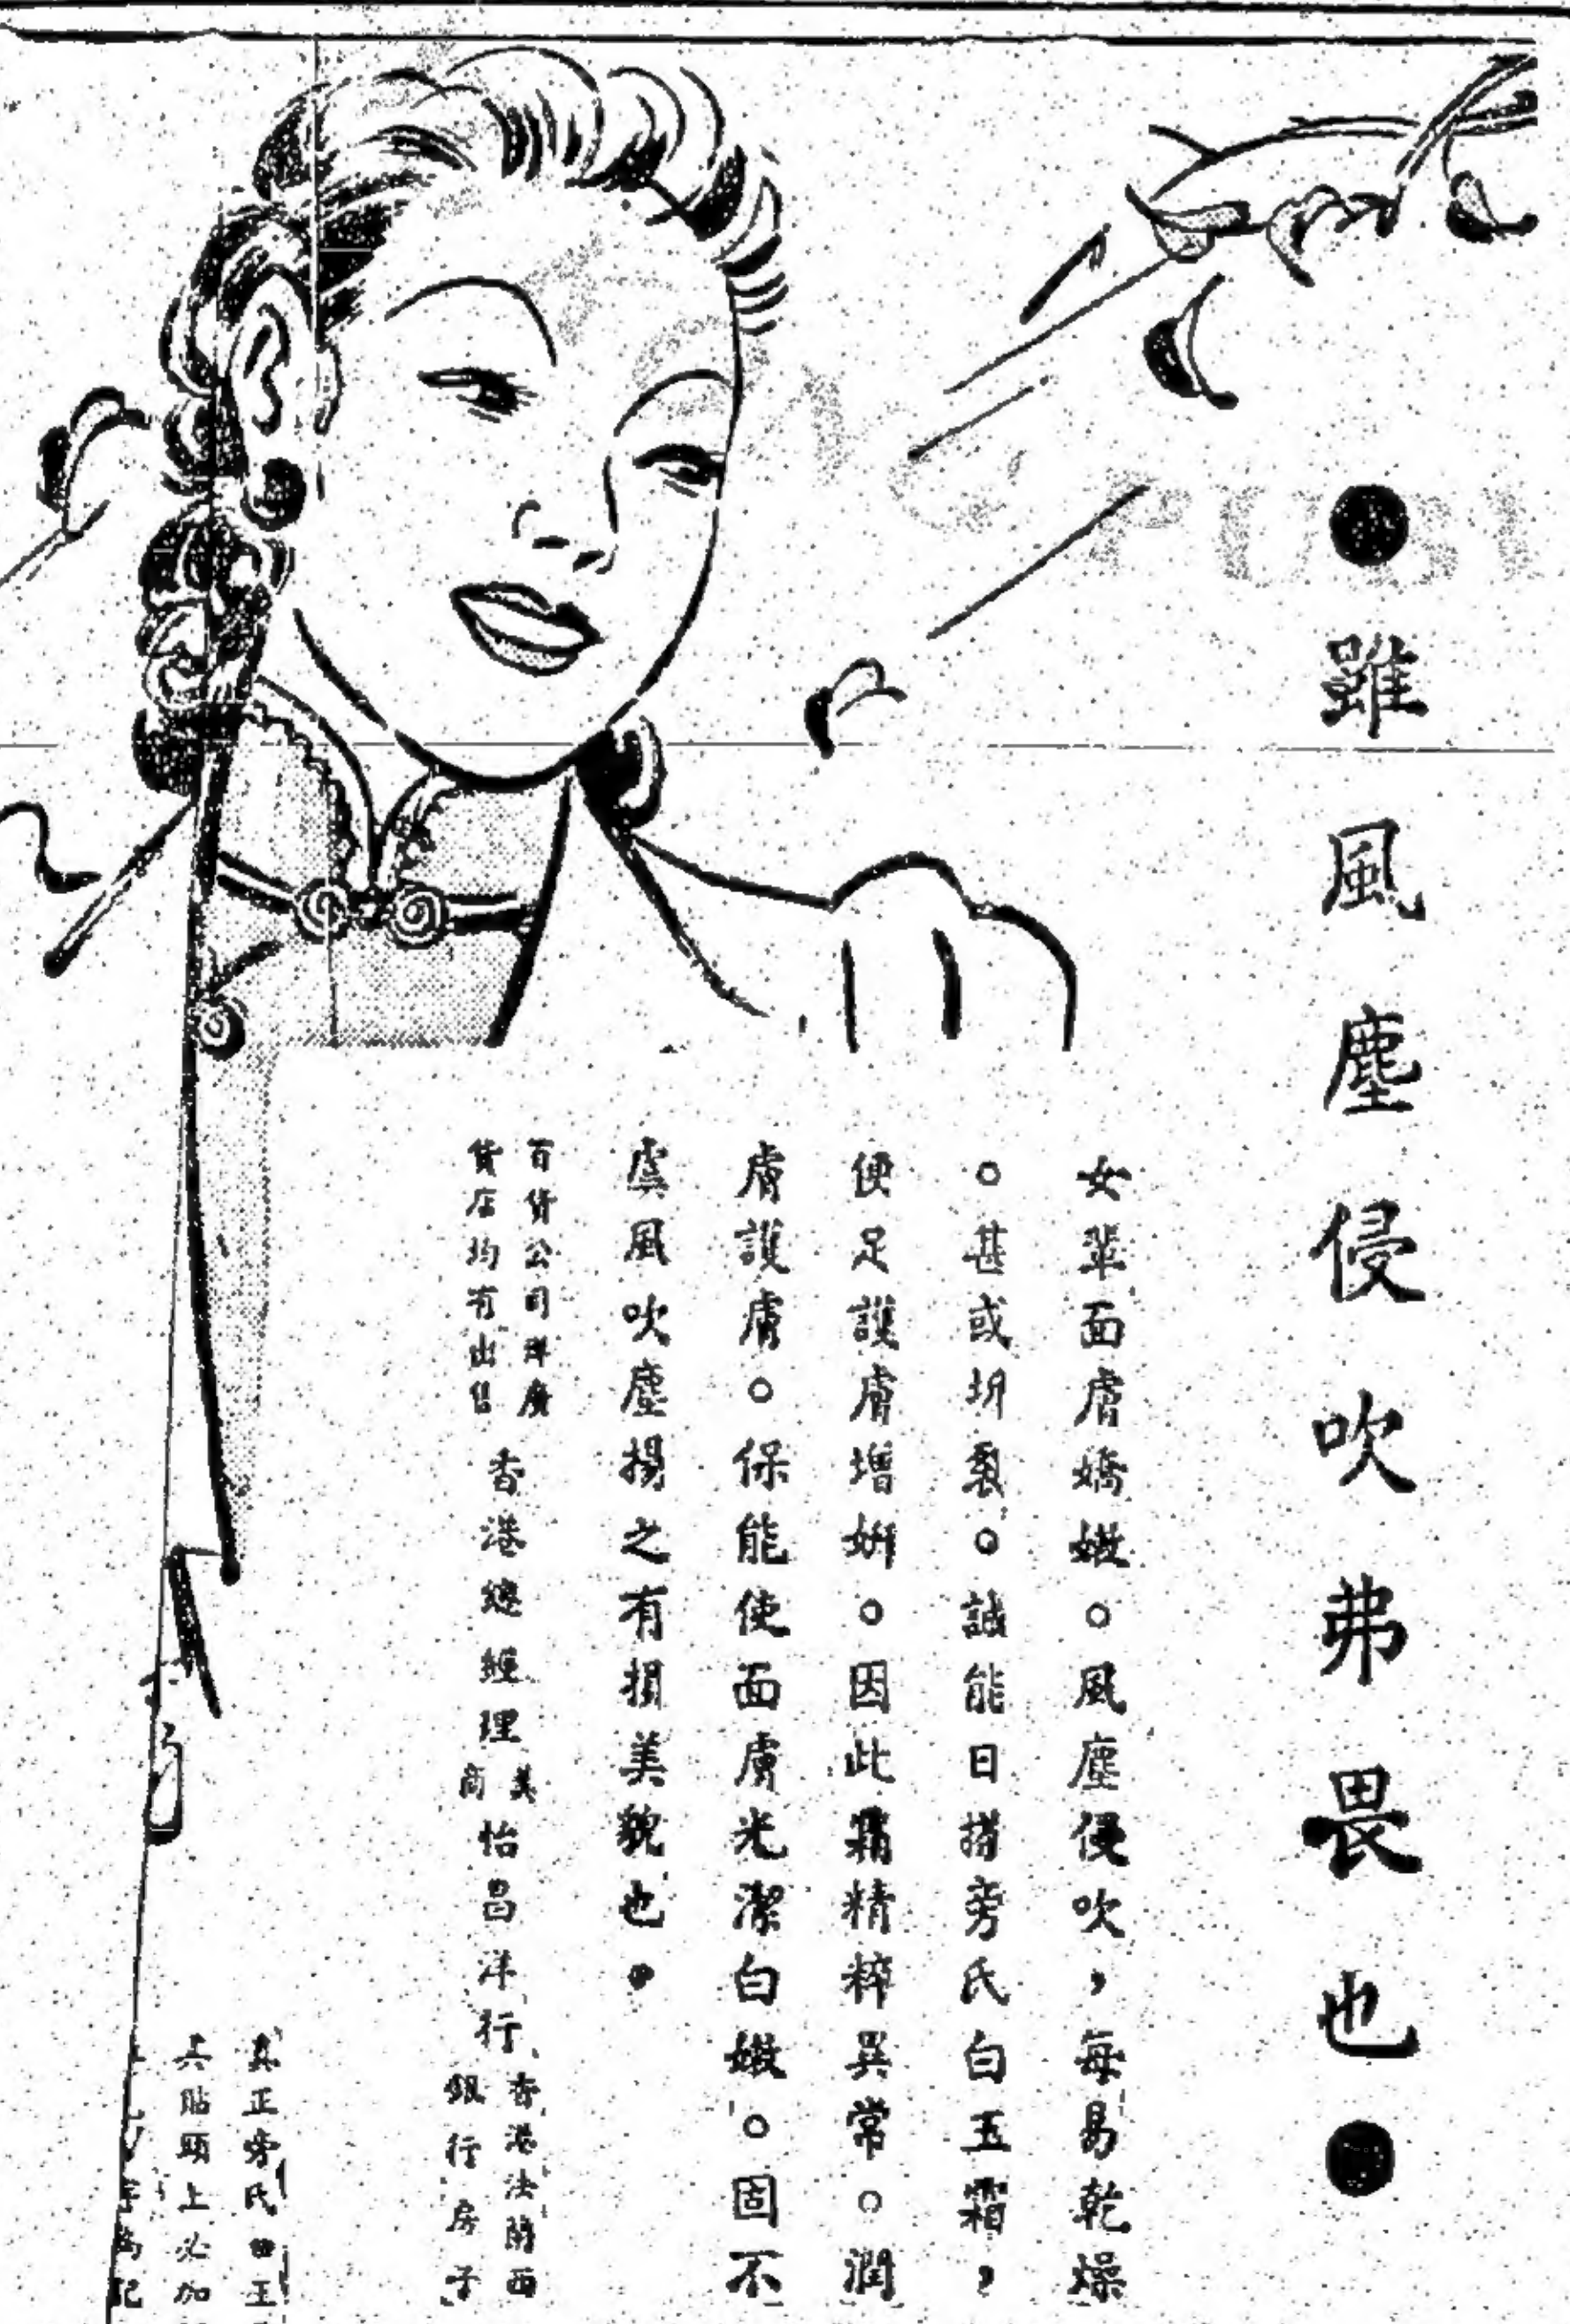 ●雖風塵侵吹弗畏也●
女輩面膚嬌嫩。風塵侵吹，每易乾燥
。甚或坼裂。誠能日搽旁氏白玉霜，
便足護膚增妍。因此霜精粹異常。潤
膚護膚。保能使面膚光潔白嫩。固不
虞風吹塵揚之有損美貌也。
百貨公司洋廣
貨店均有出售
香港總經理
美商
怡昌洋行
香港法蘭西
銀行房子
真正旁氏白玉
其貼頭上必加
為記